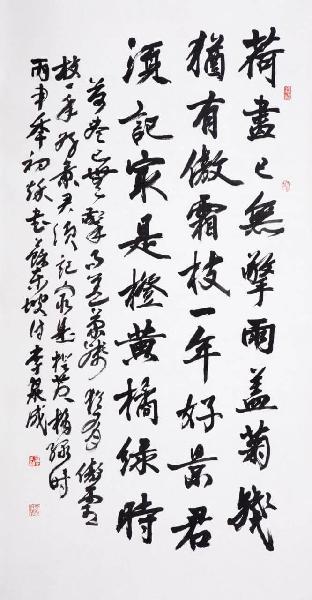 荷盡已無擎雨盖菊殘
猶有傲霜枝一年好景君
須記最是橙黄橘绿時
荷尽已無擎雨盖菊残猶有傲霜
枝一年好景君须记最是橙黄橘绿时
丙申年初秋书蘇东坡诗李泉成